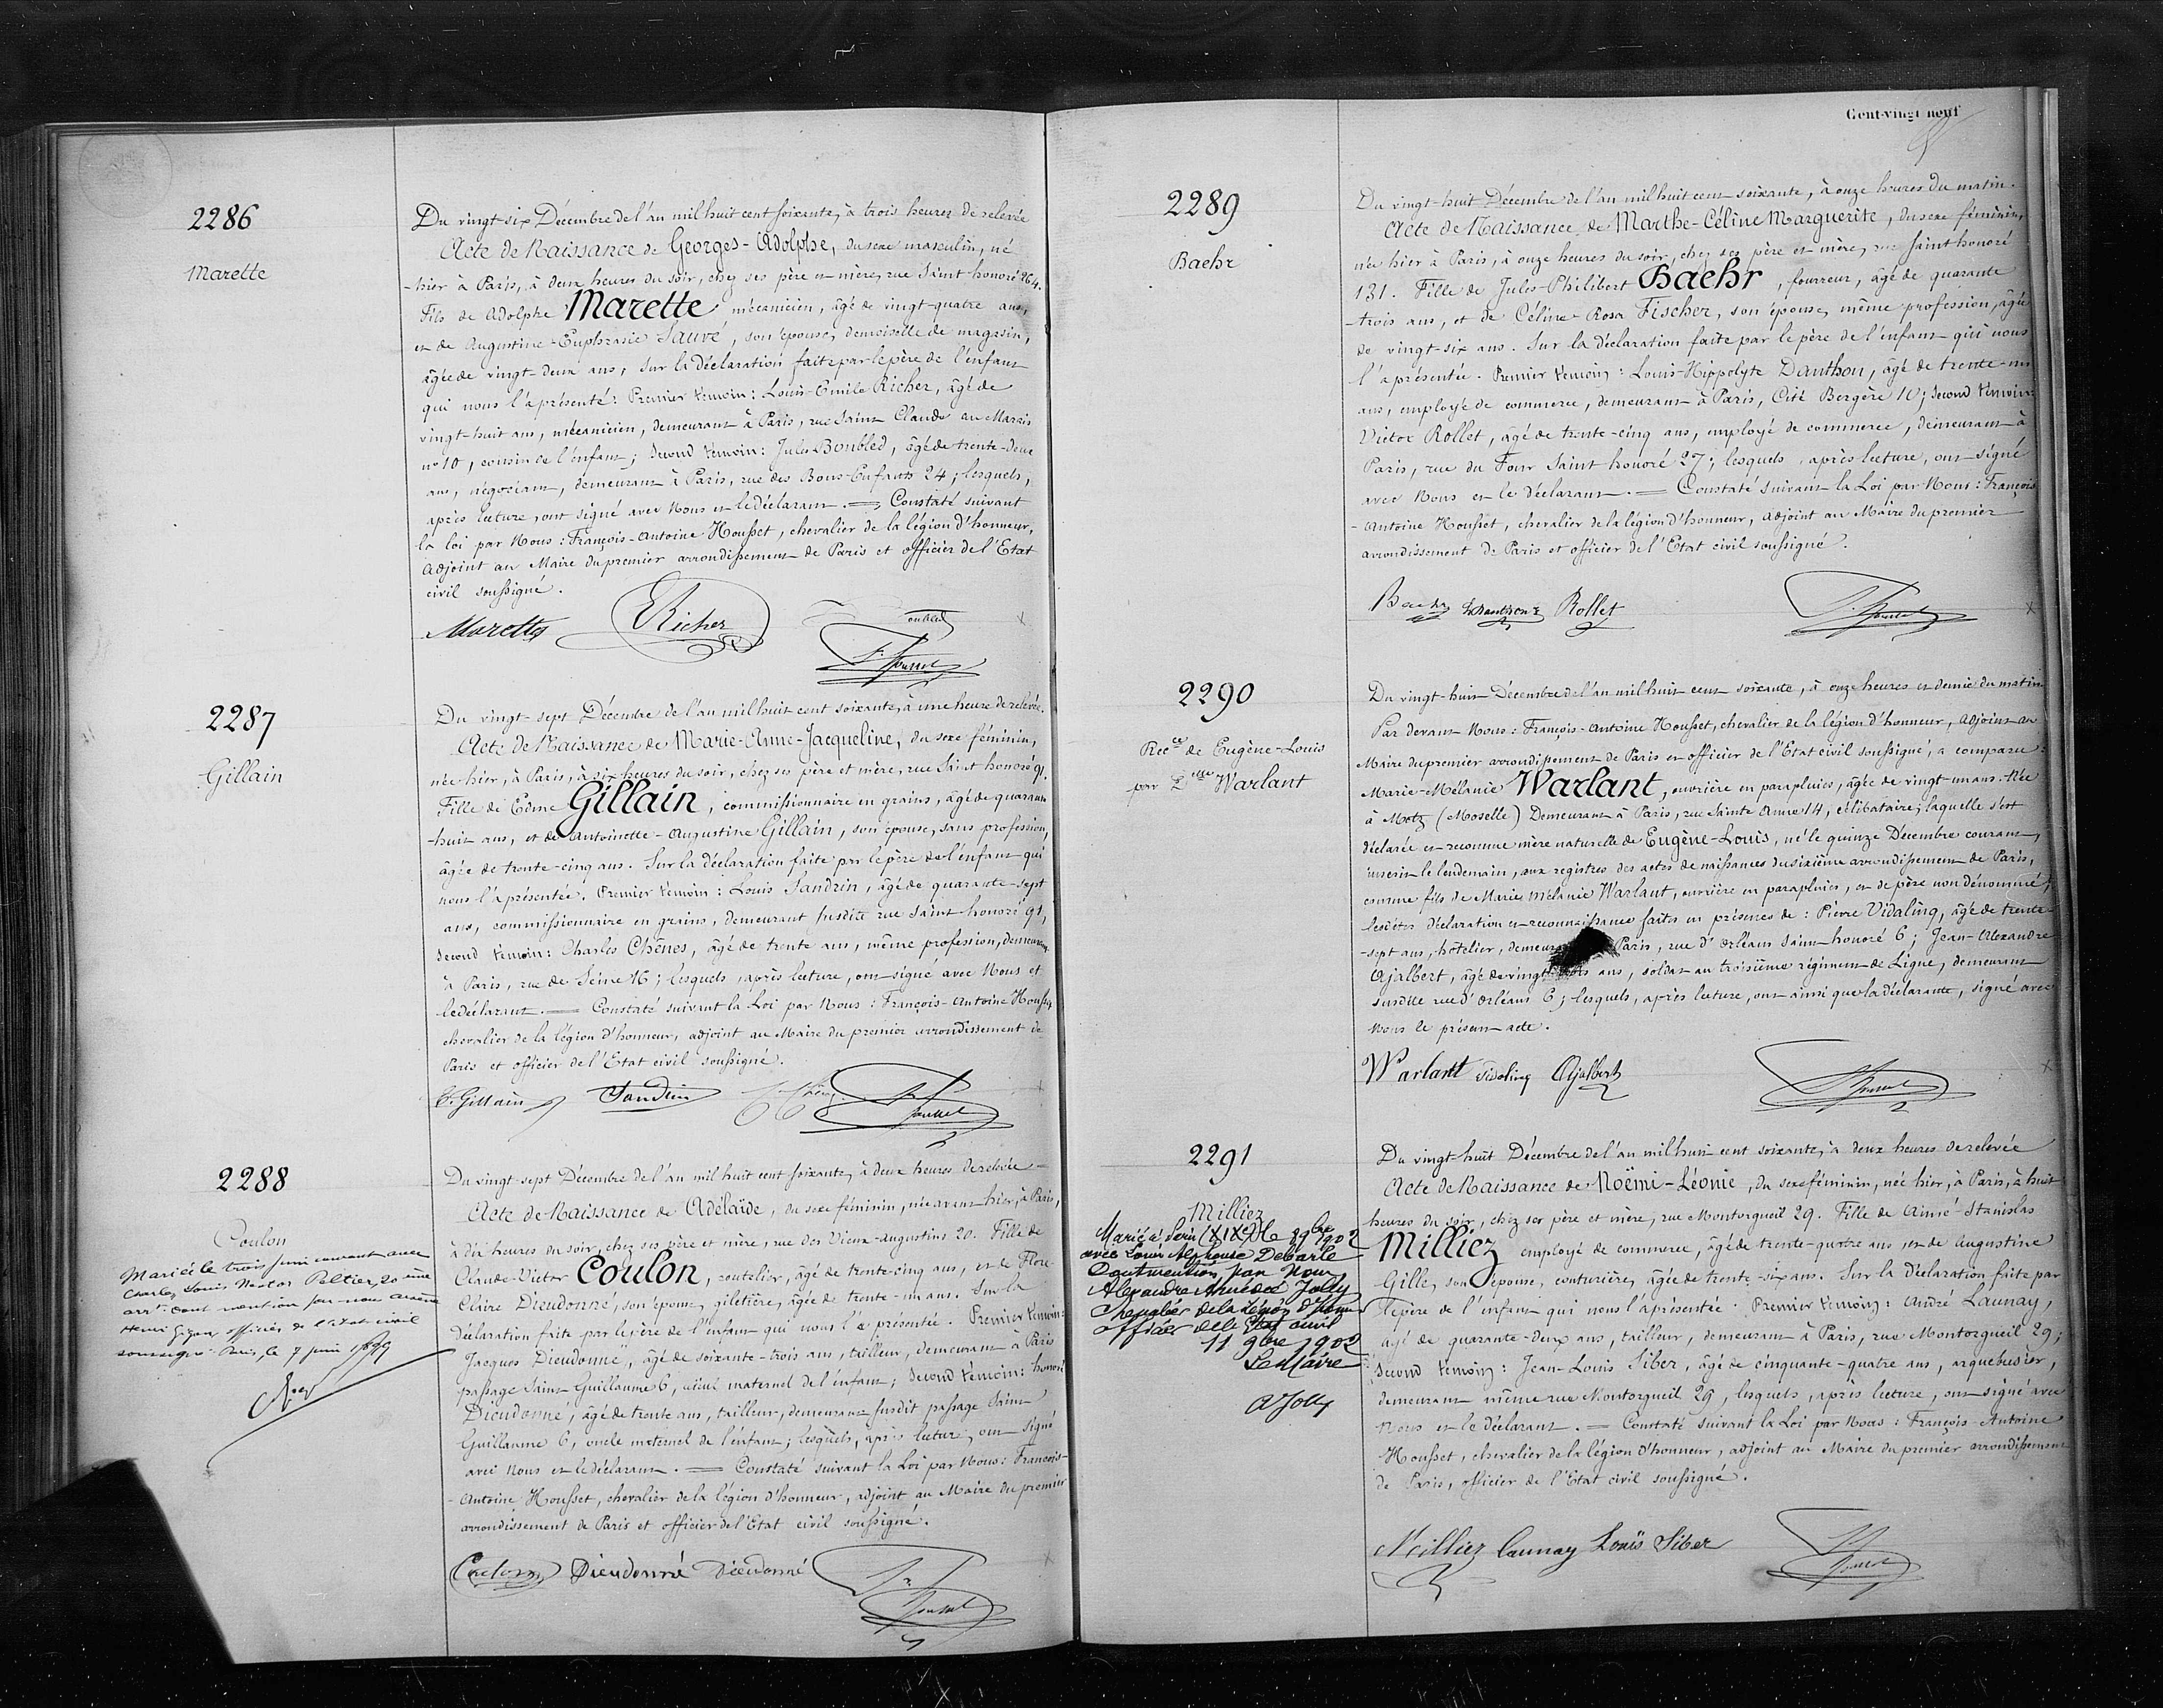 2286
Marette
Du vingt-six Décembre de l'an mil huit cent soixante, à trois heures de relevée
Acte de Naissance de Georges-Adolphe, du sexe masculin, né
hier à Paris, à deux heures du soir, chez ses père et mère, rue Saint honoré 264.
Fils de Adolphe Marette mécanicien, âgé de vingt-quatre ans,
et de Augustine-Euphrasie Sauvé, son épouse, demoiselle de magasin,
âgée de vingt-deux ans, sur la déclaration faite par le père de l'enfant
qui nous l'a présenté: Premier témoin: Louis-Emile Richer, âgé de
vingt-huit ans, mécanicien, demeurant à Paris, rue Saint Claude au Marais
no 10, cousin de l'enfant; Second témoin: Jules Boubled, âgé de trente-deux
ans, négociant, demeurant à Paris, rue des Bons-Enfants 24; lesquels,
après lecture, ont signé avec Nous et le déclarant. = Constaté suivant
la loi par Nous: François-Antoine Housset, chevalier de la légion d'honneur,
adjoint au Maire du premier arrondissement de Paris et officier de l'Etat
civil soussigné.
Marette Richer oubled
Housset
2287
Gillain
Du vingt-sept Décembre de l'an mil huit cent soixante, à une heure de relevée.
Acte de Naissance de Marie-Anne-Jacqueline, du sexe féminin,
née hier, à Paris, à six heures du soir, chez ses père et mère, rue Saint honoré 91.
Fille de Edme Gillain, commissionnaire en grains, âgé de quarante
-huit ans, et de Antoinette-Augustine Gillain, son épouse, sans profession,
âgée de trente-cinq ans. Sur la déclaration faite par le père de l'enfant qui
nous l'a présentée. Premier témoin: Louis Sandrin, âgé de quarante-sept
ans, commissionnaire en grains, demeurant susdite rue Saint honoré 91,
Second témoin: Charles Chênes, âgé de trente ans, même profession, demeurant
à Paris, rue de Seine 16; lesquels, après lecture, ont signé avec Nous et
le déclarant. = Constaté suivant la Loi par Nous: François-Antoine Housset
chevalier de la légion d'honneur, adjoint au Maire du premier arrondissement de
Paris et officier de l'Etat civil soussigné.
E. Gillain Sandrin
Housset
2288
Coulon
Mariée le trois juin courant avec
Charles Louis Nestor Peltier, 20 eme
arrt. dont mention par nous
Henri officier de l'etat civil
soussigné. Paris, le 7 juin 1899
Du vingt-sept Décembre de l'an mil huit cent soixante, à deux heures de relevée
Acte de Naissance de Adélaïde, du sexe féminin, née avant hier, à Paris,
à dix heures du soir, chez ses père et mère, rue des Vieux-Augustins 20. Fille de
Claude-Victor Coulon, coutelier, âgé de trente-cinq ans, et de Flore-
Claire Dieudonné, son épouse, giletière, âgée de trente-un ans. Sur la
déclaration faite par le père de l'enfant qui nous l'a présentée. Premier témoin:
Jacques Dieudonné, âgé de soixante-trois ans, tailleur, demeurant à Paris
passage Saint Guillaume 6, aïeul maternel de l'enfant; Second témoin: honoré
Dieudonné, âgé de trente ans, tailleur, demeurant susdit passage Saint
Guillaume 6, oncle maternel de l'enfant; lesquels, après lecture, ont signé
avec Nous et le déclarant. = Constaté suivant la Loi par Nous: François-
-Antoine Housset, chevalier de la légion d'honneur, adjoint au Maire du premier
arrondissement de Paris et officier de l'Etat civil soussigné.
Coulon Dieudonné Dieudonné
Housset
Cent-vingt neuf
2289
Baehr
Du vingt-huit Décembre de l'an mil huit cent soixante, à onze heures du matin.
Acte de Naissance de Marthe-Céline Marguerite, du sexe féminin,
née hier à Paris, à onze heures du soir, chez ses père et mère, rue Saint honoré
131. Fille de Jules-Philibert Baehr, fourreur, âgé de quarante
-trois ans, et de Céline-Rosa Fischer, son épouse, même profession, âgée
de vingt-six ans. Sur la déclaration faite par le père de l'enfant qui nous
l'a présentée. Premier témoin: Louis-Hippolyte Danthon, âgé de trente-un
ans, employé de commerce, demeurant à Paris, Cité Bergère 10; Second témoin:
Victor Rollet, âgé de trente-cinq ans, employé de commerce, demeurant à
Paris, rue du Four Saint honoré 27; lesquels, après lecture, ont signé
avec Nous et le déclarant. = Constaté suivant la Loi par Nous: François
-Antoine Housset, chevalier de la légion d'honneur, adjoint au Maire du premier
arrondissement de Paris et officier de l'Etat civil soussigné.
Baehr Danthon Rollet
Housset
2290
Recce de Eugène-Louis
par Delle Warlant
Du vingt-huit Décembre de l'an mil huit cent soixante, à onze heures et demie du matin
Par devant Nous: François-Antoine Housset, chevalier de la légion d'honneur, adjoint au
Maire du premier arrondissement de Paris et officier de l'Etat civil soussigné, a comparu:
Marie-Mélanie Warlant, ouvrière en parapluies, âgée de vingt-un ans. Née
à Metz (Moselle) Demeurant à Paris, rue Sainte Anne 14, célibataire; laquelle s'est
déclarée et reconnue mère naturelle de Eugène-Louis, né le quinze Décembre courant,
inscrit le lendemain, aux registres des actes de naissances du sixième arrondissement de Paris,
comme fils de Marie Mélanie Warlant, ouvrière en parapluies, et de père non dénommé;
lesdites déclaration et reconnaissance faites en présence de: Pierre Vidaling, âgé de trente
-sept ans, hôtelier, Paris, rue d'Orléans Saint-honoré 6; Jean-Alexandre
Ajalbert, âgé de vingt ans, soldat au troisième régiment de Ligne, demeurant
susdite rue d'Orléans 6; lesquels, après lecture, ont ainsi que la déclarante, signé avec
Nous le présent acte.
Warlant Vidaling Ajalbert
Housset
2291
Milliez
Mariée à Paris (XIXe) le 8 9bre 1902
avec Louis Alphonse Debarle
Dont mention par Nous
Alexandre Amédée Jolly
Chevalier de la Légion d'honneur
officier de l'Etat civil
11 9bre 1902
Le Maire
A Jolly
Du vingt-huit Décembre de l'an mil huit cent soixante, à deux heures de relevée
Acte de Naissance de Noëmi-Léonie, du sexe féminin, née hier, à Paris, à huit
heures du soir, chez ses père et mère, rue Montorgueil 29. Fille de Aimé-Stanislas
Milliez employé de commerce, âgé de trente-quatre ans, et de Augustine
Gille, son épouse, couturière, âgée de trente-six ans. Sur la déclaration faite par
le père de l'enfant qui nous l'a présentée. Premier témoin: André Launay,
âgé de quarante-deux ans, tailleur, demeurant à Paris, rue Montorgueil 29;
Second témoin: Jean-Louis Siber, âgé de cinquante-quatre ans, arquebusier,
demeurant même rue Montorgueil 29, lesquels, après lecture, ont signé avec
Nous et le déclarant. = Constaté suivant la Loi par Nous: François-Antoine
Housset, chevalier de la légion d'honneur, adjoint au Maire du premier arrondissement
de Paris, officier de l'Etat civil soussigné.
Milliez Launay Louis Siber
Housset